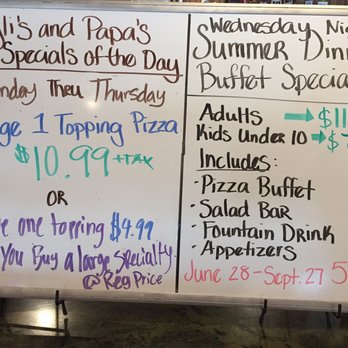 li's and Papa's
Specials of the Day
nday Thru Thursday
ge 1 Topping Pizza
$10.99 +TAX
OR
e one topping $4.99
You Buy a large Specialty
@ Reg Price
Wednesday Nig
Summer Dinn
Buffet Special
Adults → $11
Kids Under 10 → $
Includes:
• Pizza Buffet
• Salad Bar
• Fountain Drink
• Appetizers
June 28 - Sept. 27 5